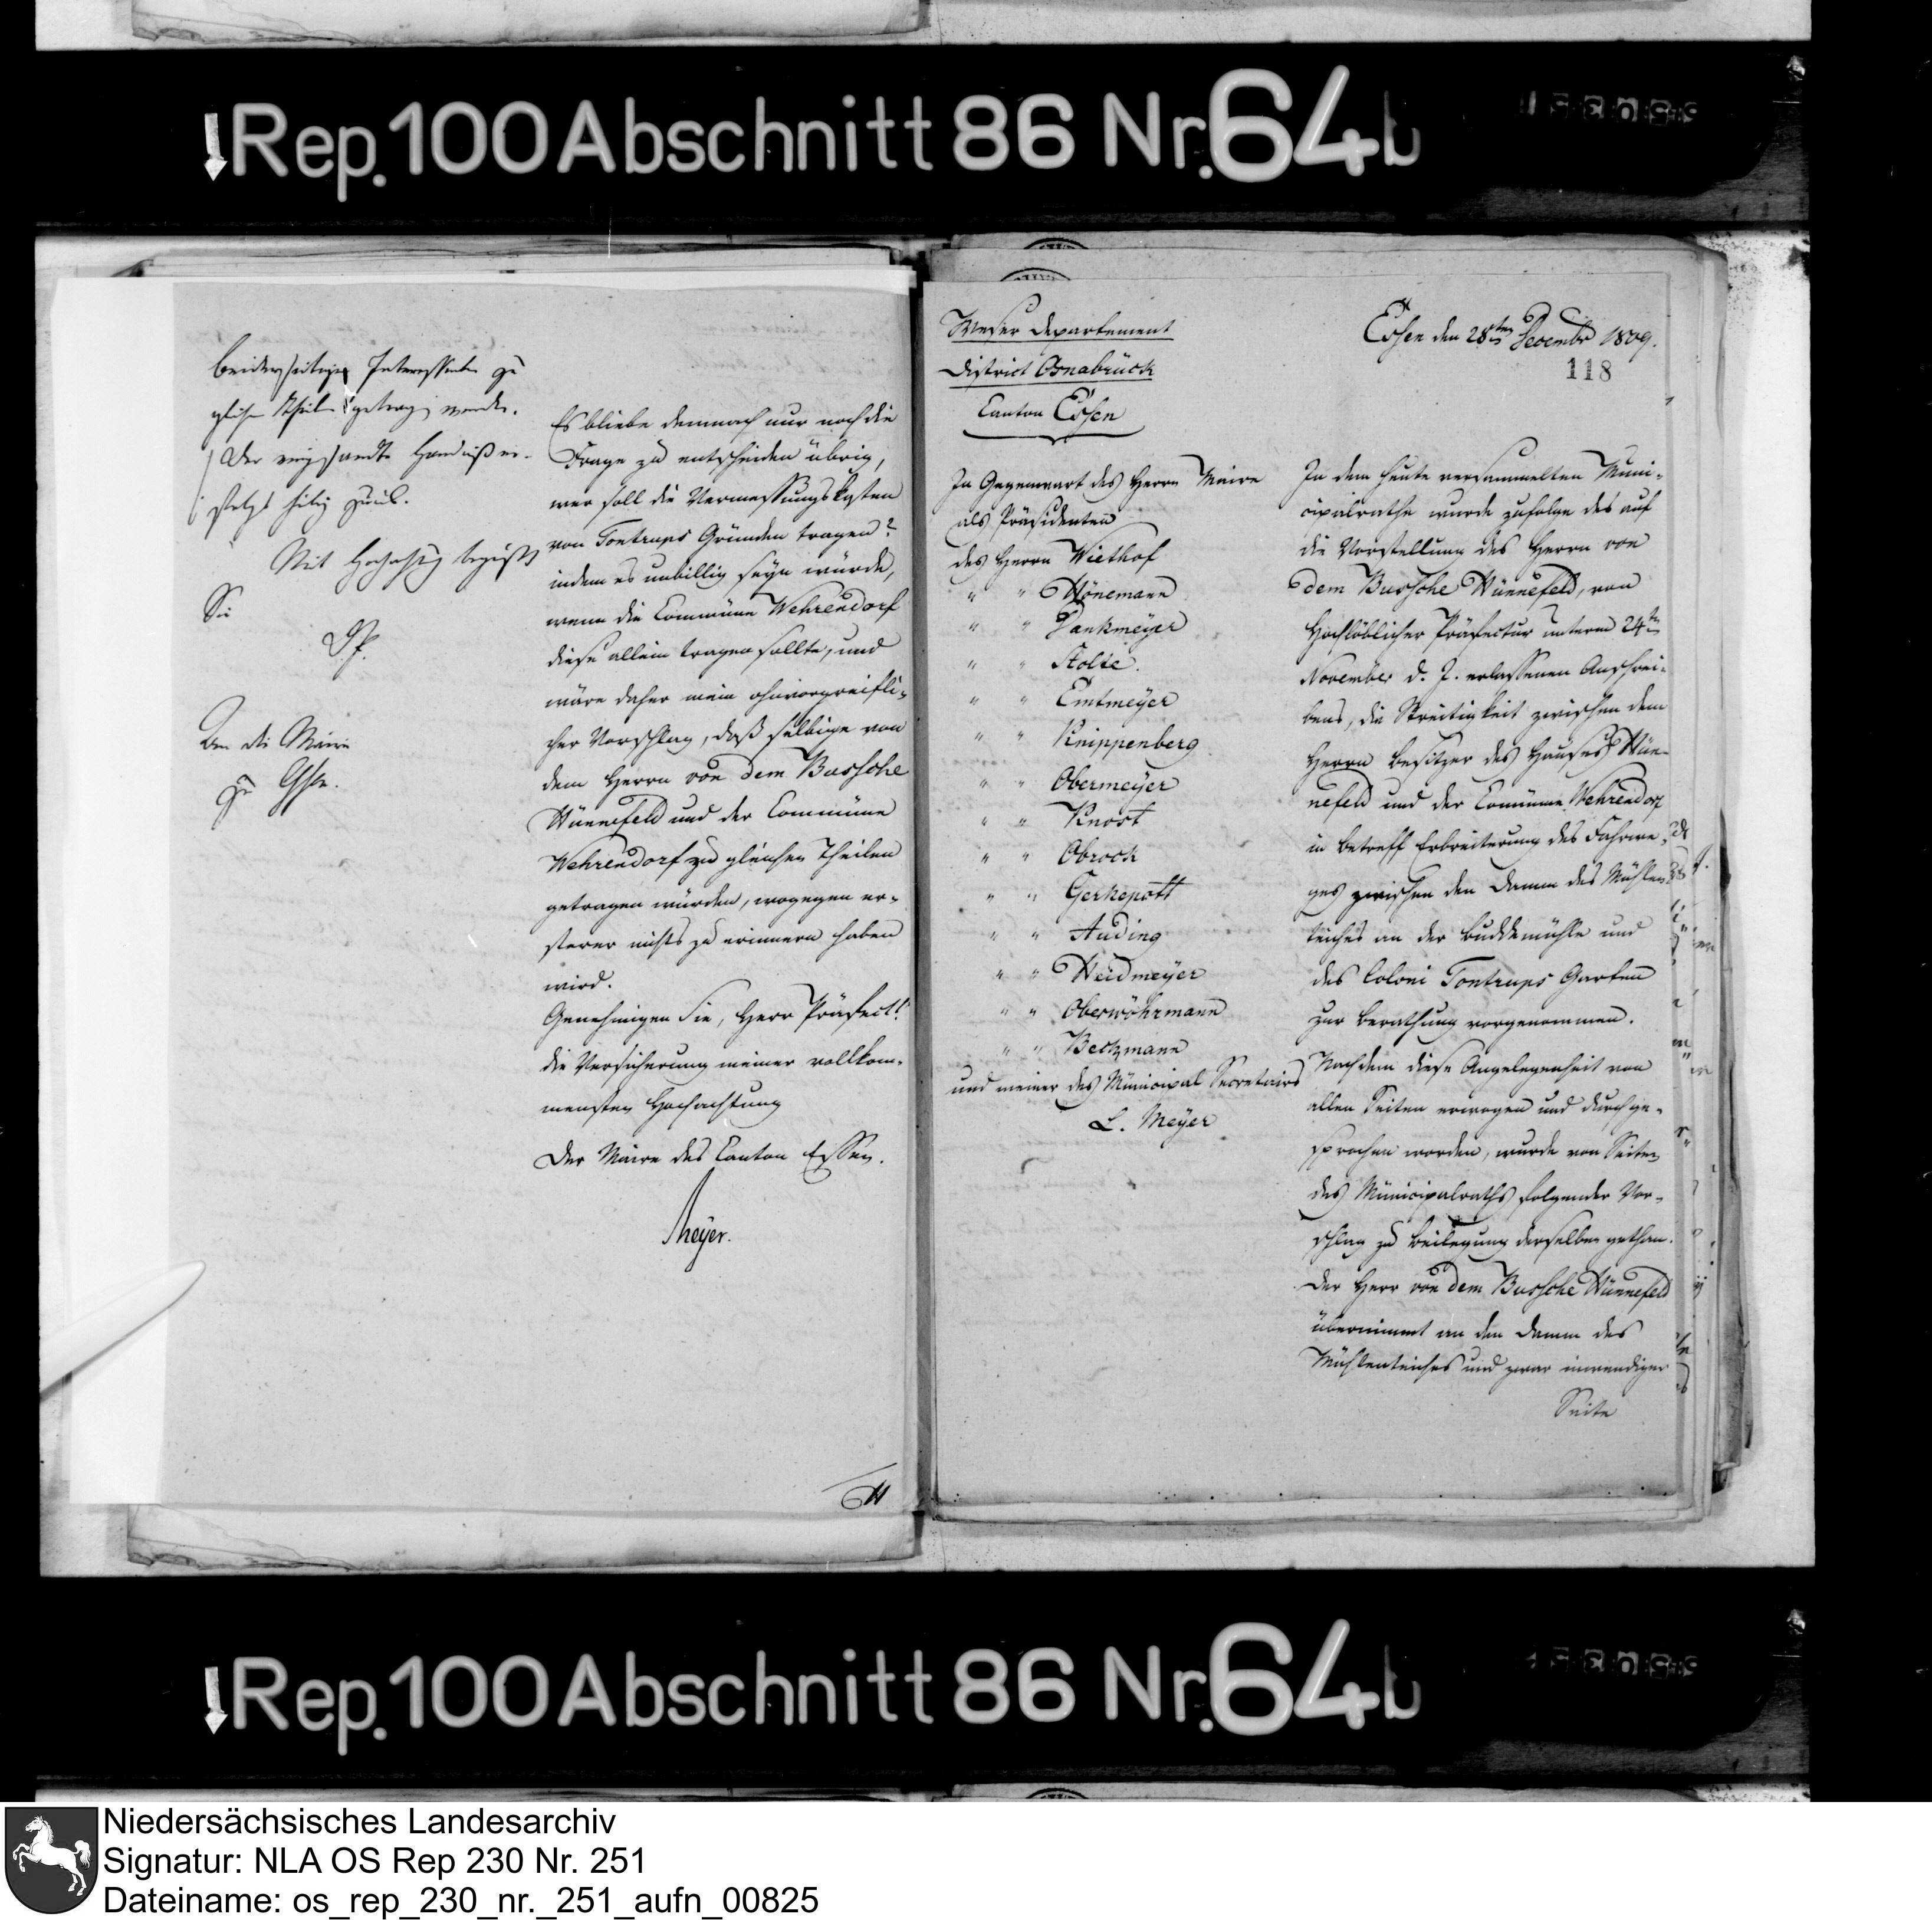 Rep. 100 Abschnitt 86 Nr. 64b
beiderseitigen Interessenten zu
gleichen Theilen getragen werden.
Mit Hochachtung
Sie
An den Maire
zu Essen.
Es bliebe demnach nur noch die
Frage zu entscheiden übrig,
wer soll die Vermessungskosten
von Tontrups Gründen tragen?
indem es unbillig seyn würde,
wenn die Commüne Wehrendorf
diese allein tragen sollte, und
wäre daher mein ohnvorgreifli-
cher Vorschlag, daß selbige von
dem Herrn von dem Bussche
Hünnefeld und der Commüne
Wehrendorf zu gleichen Theilen
getragen würden, wogegen er-
sterer nichts zu erinnern haben
wird.
Genehmigen Sie, Herr Präfect!
die Versicherung meiner vollkom-
mensten Hochachtung
Der Maire des Canton Essen.
Meÿer.
Weser Departement
District Osnabrück
Canton Essen
Essen den 28ten Decembr 1809.
118
In Gegenwart des Herrn Maire
als Präsidenten
des Herrn Wiethof
" " Hönemann
" " Dankmeÿer
" " Stolte.
" " Emtmeÿer
" " Knippenberg
" " Obermeÿer
" " Knost
" " Obrock
" " Gerkepott
" " Auding
" " Heidmeÿer
" " Oberwöhrmann
" " Beckmann
und meiner des Municipal Secretairs
L. Meÿer
In dem heute versammelten Muni-
cipalrathe wurde zufolge des auf
die Vorstellung des Herrn von
dem Bussche Hünnefeld, von
Hochlöblicher Präfectur unterm 24ten
November d. J. erlassenen Ausschrei-
bens, die Streitigkeit zwischen dem
Herrn Besitzer des Hauses Hün-
nefeld und der Commüne Wehrendorf
in betreff Erbreiterung des Fahrwe-
ges zwischen den Damm des Mühlen-
teiches an der Buddemühle und
des Coloni Tontrups Garten
zur Berathung vorgenommen.
Nachdem diese Angelegenheit von
allen Seiten erwogen und durchge-
sprochen worden, wurde von Seiten
des Municipalraths folgender Vor-
schlag zu Beilegung derselben gethan.
Der Herr von dem Bussche Hünnefeld
übernimmt an den Damm des
Mühlenteiches und zwar inwendiger
Seite
Rep. 100 Abschnitt 86 Nr. 64b
Niedersächsisches Landesarchiv
Signatur: NLA OS Rep 230 Nr. 251
Dateiname: os_rep_230_nr._251_aufn_00825